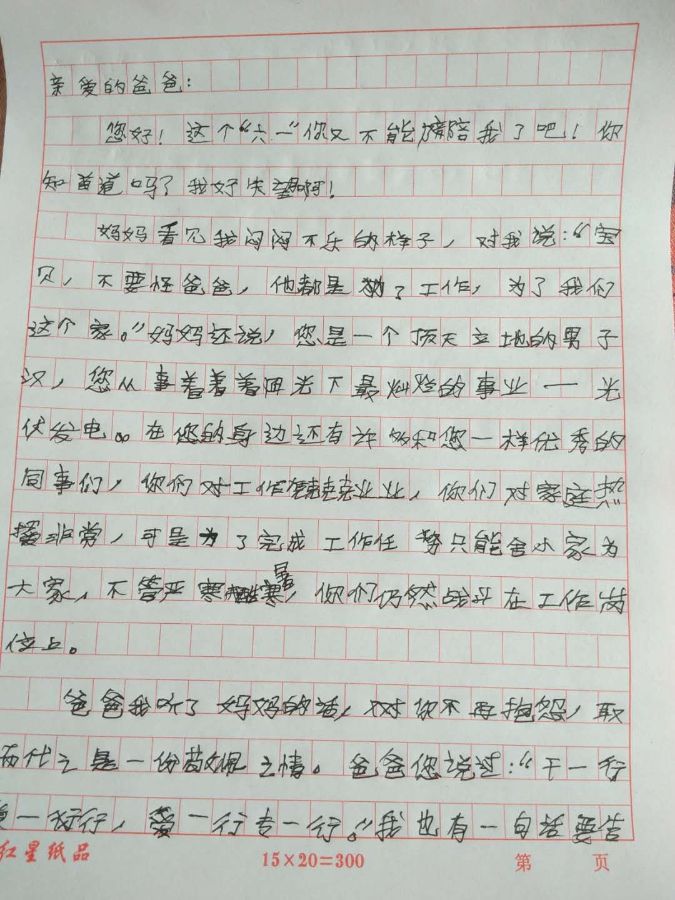 亲爱的爸爸：
您好！这个“六一”你又不能陪我了吧！你
知道吗？我好失望啊！
妈妈看见我闷闷不乐的样子，对我说：“宝
贝，不要怪爸爸，他都是为了工作，为了我们
这个家。”妈妈还说，您是一个顶天立地的男子
汉，您从事着着着阳光下最灿烂的事业——光
伏发电。在您的身边还有许多和您一样优秀的
同事们，你们对工作兢兢业业，你们对家庭热
非常，可是为了完成工作任务只能舍小家为
大家，不管严寒酷暑，你们仍然战斗在工作岗
位上。
爸爸我听了妈妈的话，对你不再抱怨，取
而代之是一份敬佩之情。爸爸您说过：“干一行
爱一行，爱一行专一行。”我也有一句话要告
红星纸品
15×20=300
第 页